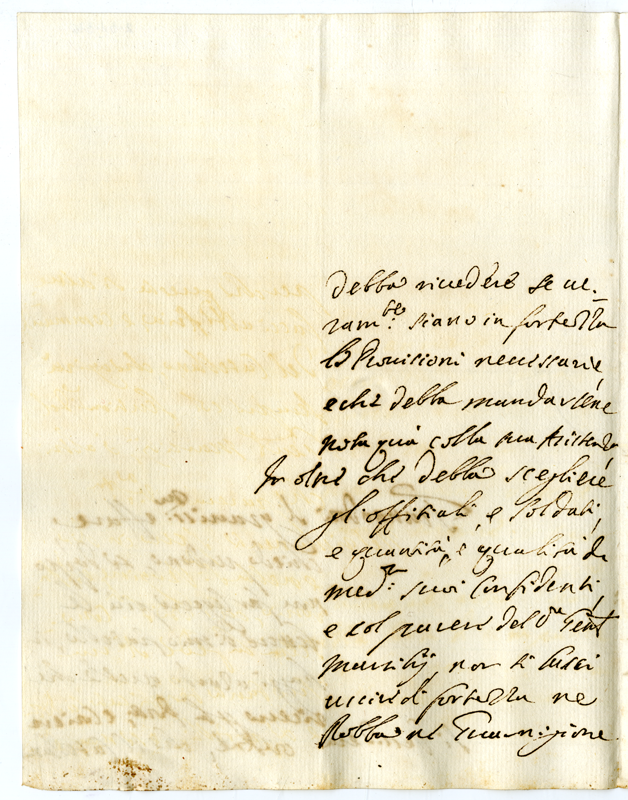 debba rivedere se ve-
ram:te siano in fortezza
le Provisioni necessarie,
e che debba mandarsene
nota quà colla sua Assistenza
In oltre che debba scegliere
gli offitiali, e soldati,
e quantità, e qualità de
med:mi suoi Confidenti,
e col parere del d.o Gen.l
Marsilij, non si lasci
uscire di fortezza ne
Robba ne Guarnigione